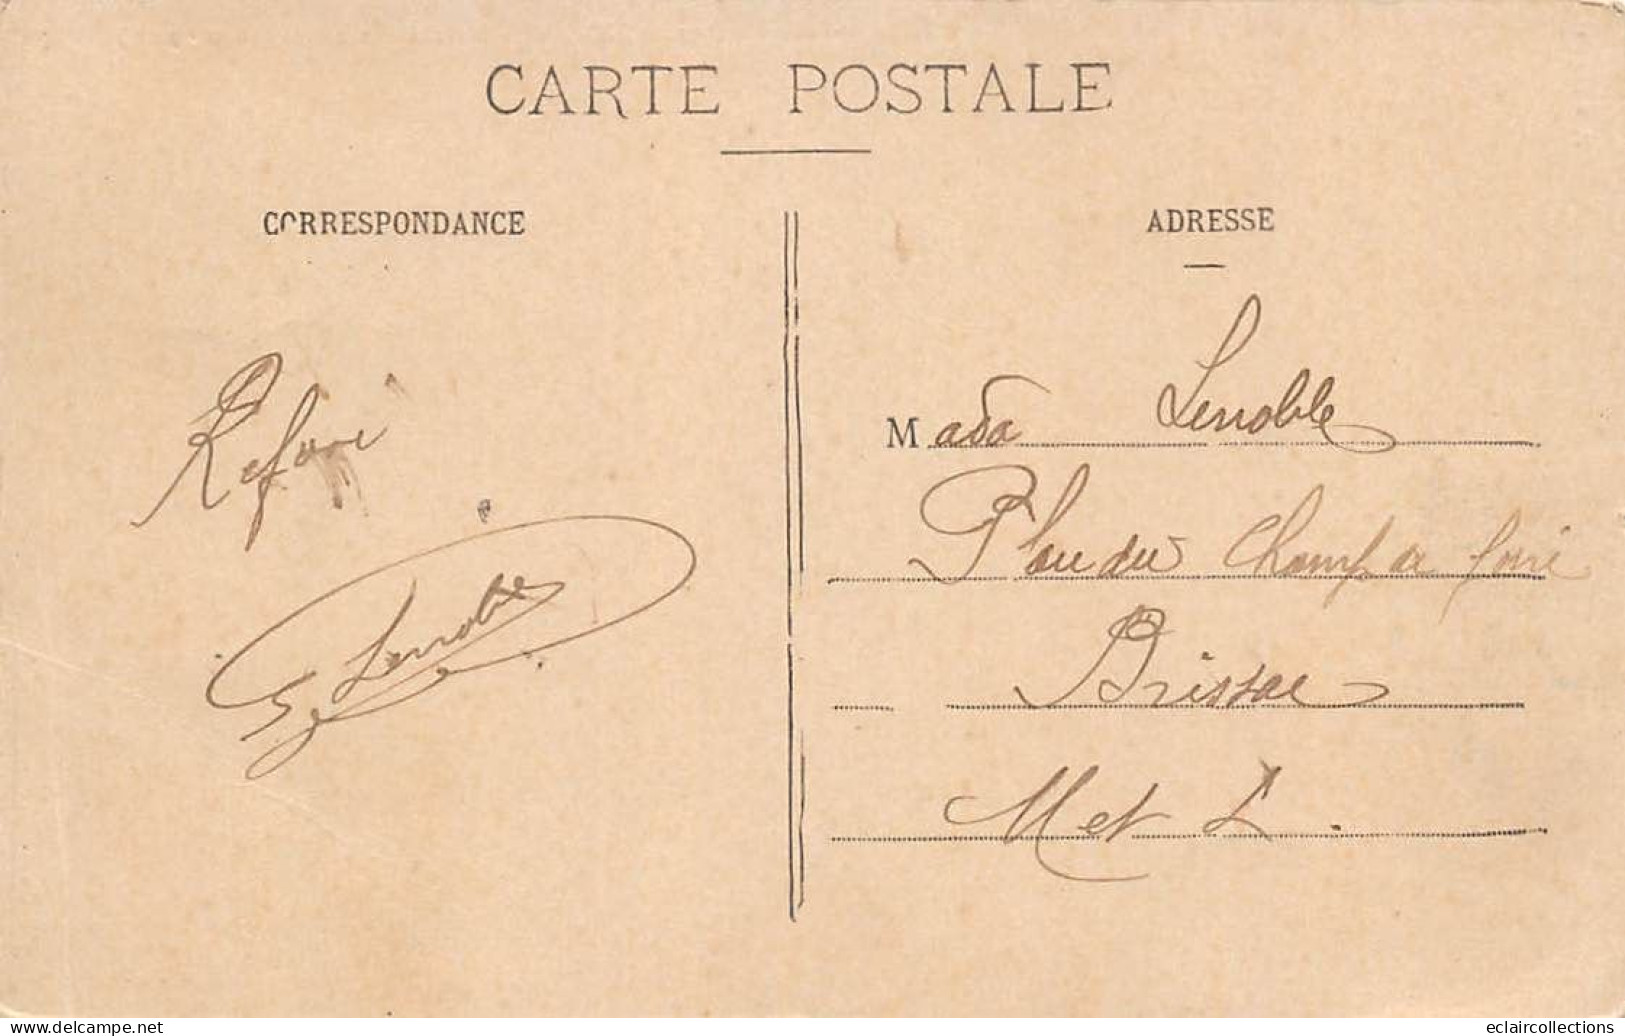 CARTE POSTALE
CORRESPONDANCE
ADRESSE
Lenoble
Mada Lenoble
du Champ de foire
Brissac
M et L.
www.delcampe.net
eclaircollections